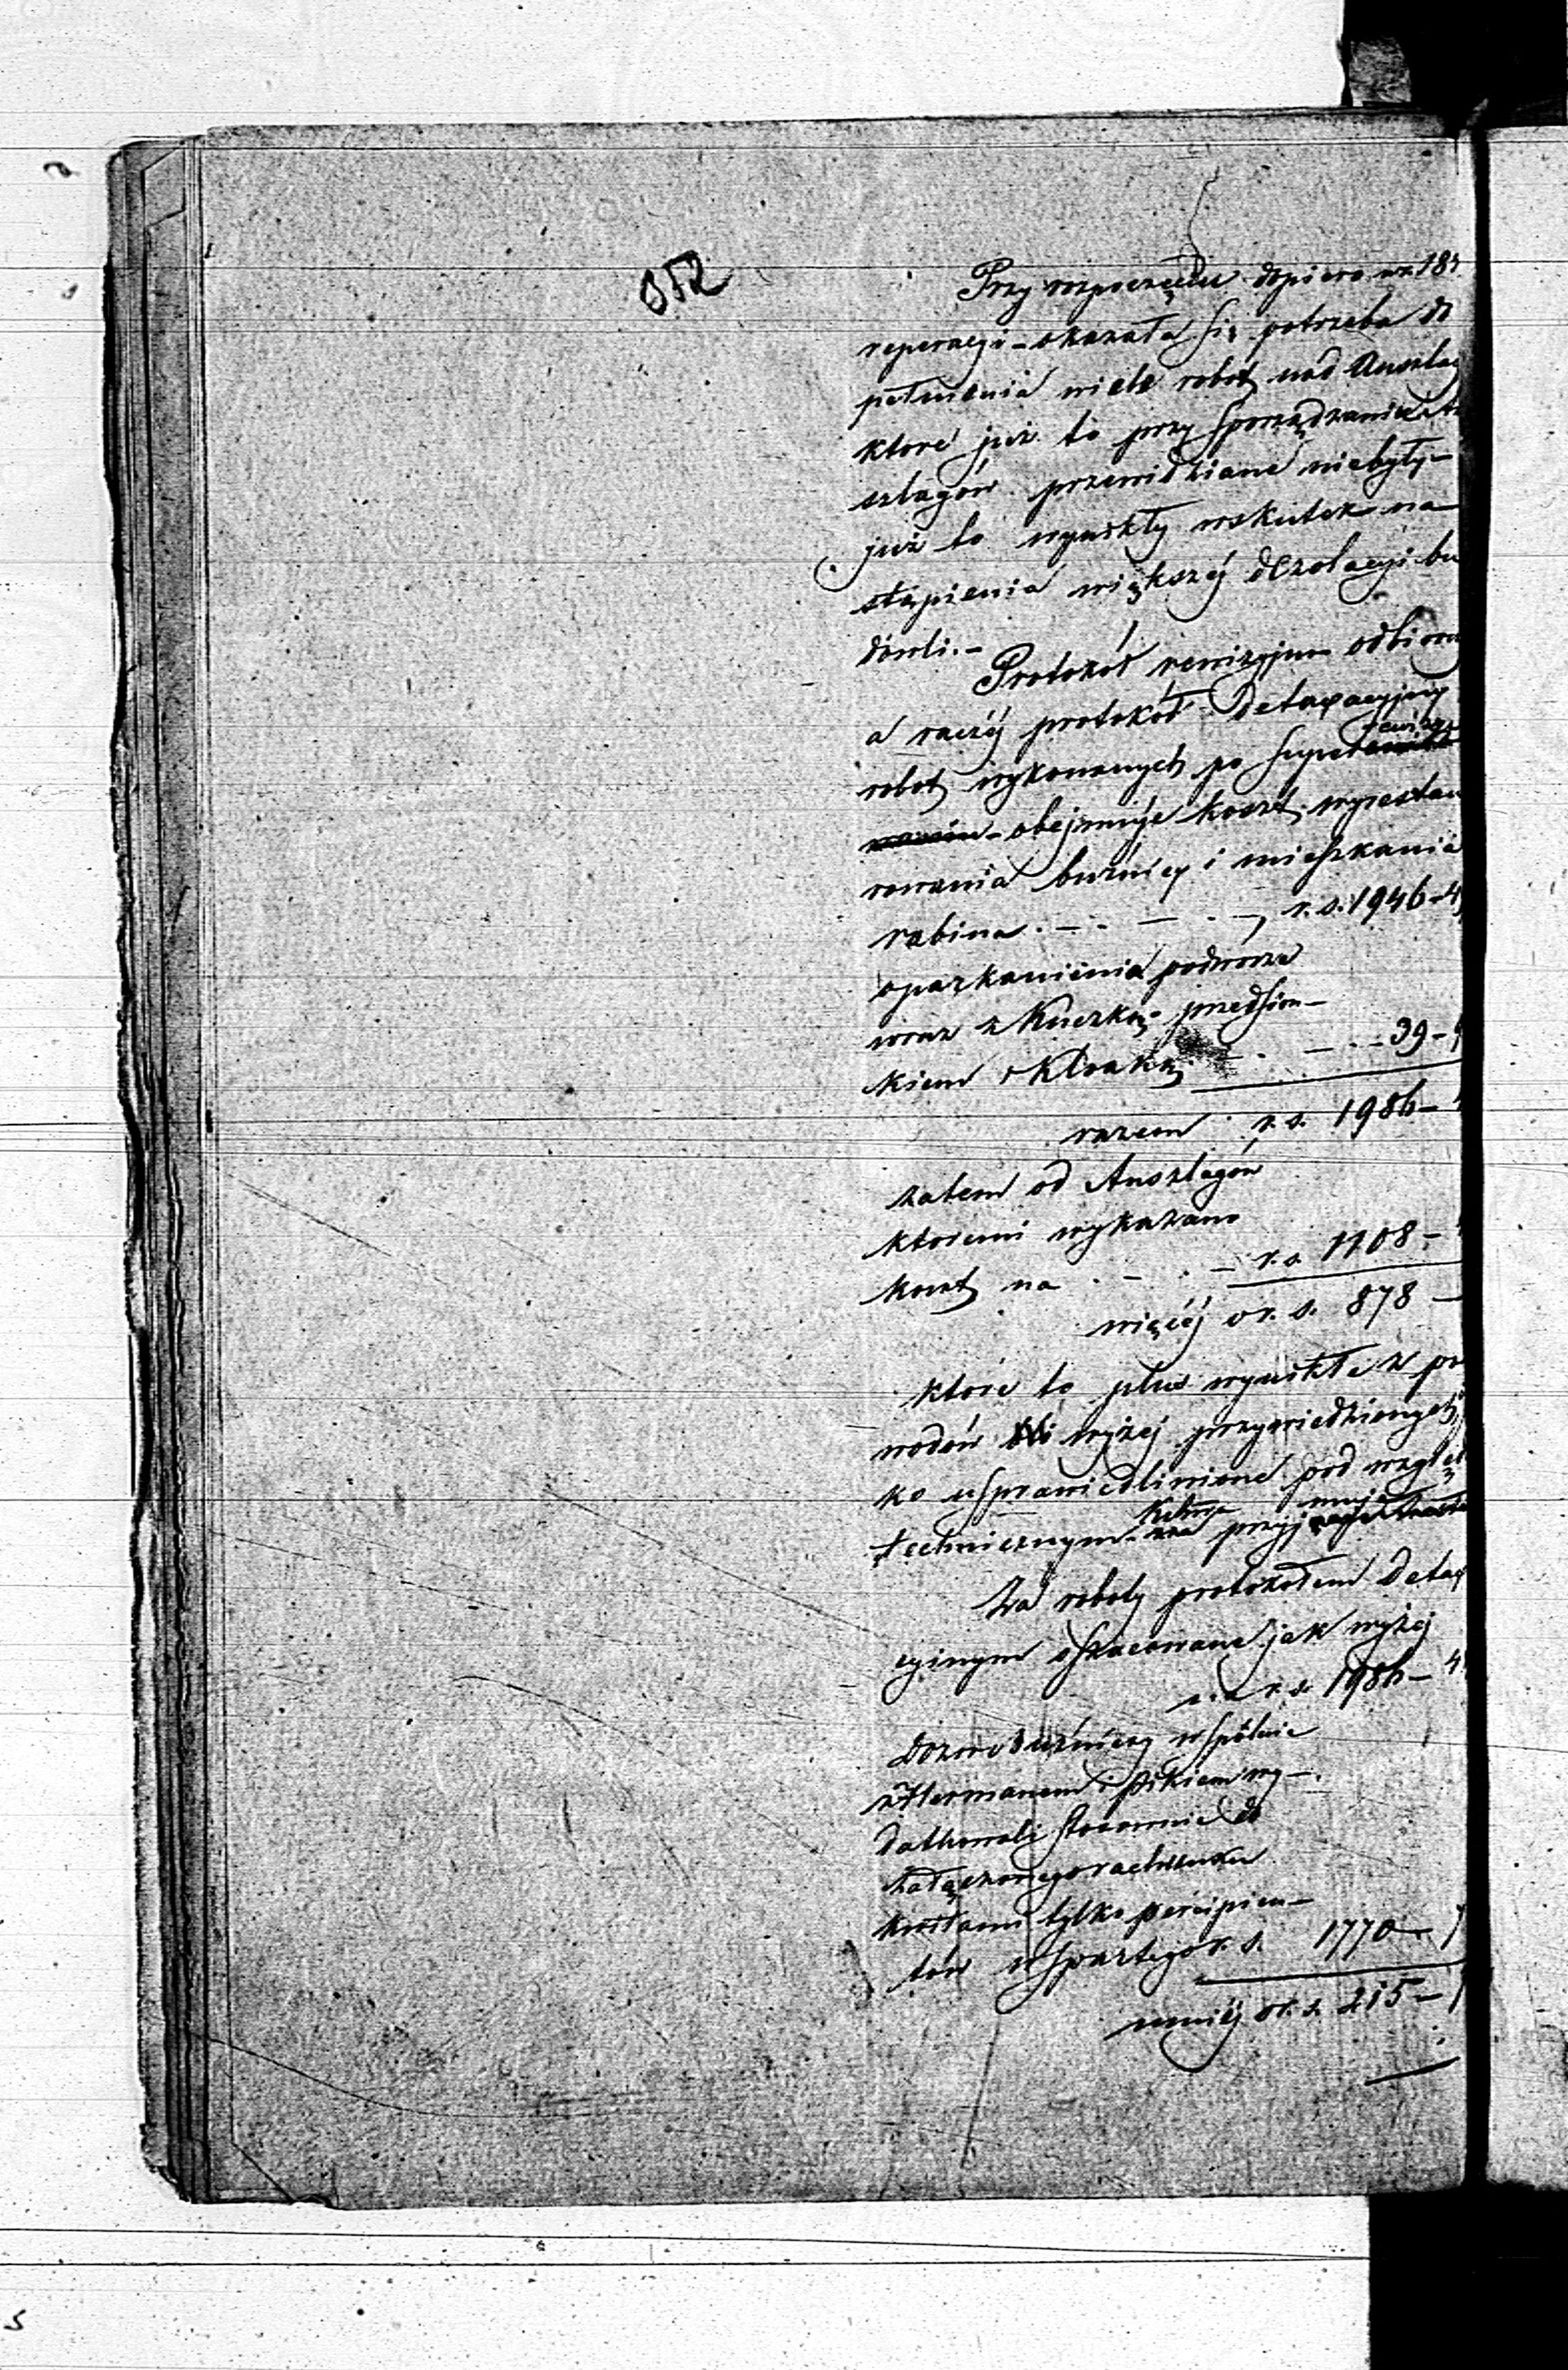 352
Przy rozpoczęciu dopiero w r. 185
reperacyi – okazała się potrzeba do
pełnienia wiele robót nad Anszlag
które już to przy sporządzaniu An
szlagów przewidziane niebyły –
już to wynikły wskutek na
stąpienia większéj dezolacyi bu
dowli. –
Protokół rewizyjno odbiorcz
a raczéj protokół Detaxacyjny
robót wykonanych po super rewizy
obejmuje koszt wyrestau
rowania bużnicy i mieszkania
rabina . – . – . – r. s. 1946 – 4
oparkanienia podwórza
wraz z Kuczką, przedsion –
kiem i Kloaką – . – . – 39 –
razem r. s. 1986 –
zatem od Anszlagów
któremi wykazano
koszt na . – . – r. s. 1108 –
więcéj o r. s. 878 –
które to plus wynikłe z po
wodów wyżej przywiedzionych
ko usprawiedliwione pod wzglę
technicznym przyj muje
Za roboty protokołem Detax
cyinym oszacowane jak wyżej
na r. s. 1986 – 4
Dozór bużniczy wspólnie
z Hermanem i wy –
datkowali stosownie do
załączonego rachunku
kwitami tylko percipien –
tów wspartego r. s. 1770 –
mniéj o r. s. 215 –